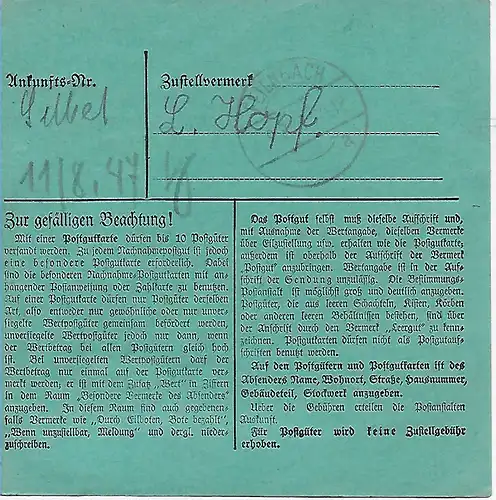 Ankunfts-Nr.
Zustellvermerk
Selbst
L. Hopf.
11/8. 47
Zur gefälligen Beachtung!
Mit einer Postgutkarte dürfen bis 10 Postgüter
versandt werden. Zu jedem Nachnahmepostgut ist jedoch
eine besondere Postgutkarte erforderlich. Dabei
sind die besonderen Nachnahme-Postgutkarten mit an-
hängender Postanweisung oder Zahlkarte zu benutzen.
Auf einer Postgutkarte dürfen nur Postgüter derselben
Art, also entweder nur gewöhnliche oder nur unver-
siegelte Wertpostgüter gemeinsam befördert werden,
unversiegelte Wertpostgüter jedoch nur dann, wenn
der Wertbetrag bei allen Postgütern gleich hoch
ist. Bei unversiegelten Wertpostgütern darf der
Wertbetrag nur einmal auf der Postgutkarte ver-
merkt werden, er ist mit dem Zusatz „Wert“ in Ziffern
in dem Raum „Besondere Vermerke des Absenders“
anzugeben. In diesem Raum sind auch gegebenen-
falls Vermerke wie „Durch Eilboten, Bote bezahlt“,
„Wenn unzustellbar, Meldung“ und dergl. nieder-
zuschreiben.
Das Postgut selbst muß dieselbe Aufschrift und,
mit Ausnahme der Wertangabe, dieselben Vermerke
über Eilzustellung usw. erhalten wie die Postgutkarte;
außerdem ist oberhalb der Aufschrift der Vermerk
„Postgut“ anzubringen. Wertangabe ist in der Auf-
schrift der Sendung unzulässig. Die Bestimmungs-
Postanstalt ist möglichst groß und deutlich anzugeben.
Postgüter, die aus leeren Schachteln, Kisten, Körben
oder anderen leeren Behältnissen bestehen, sind über
der Anschrift durch den Vermerk „Leergut“ zu kenn-
zeichnen. Postgutkarten dürfen nicht als Postgutauf-
schriften benutzt werden.
Auf den Postgütern und Postgutkarten ist des
Absenders Name, Wohnort, Straße, Hausnummer,
Gebäudeteil, Stockwerk anzugeben.
Ueber die Gebühren erteilen die Postanstalten
Auskunft.
Für Postgüter wird keine Zustellgebühr
erhoben.